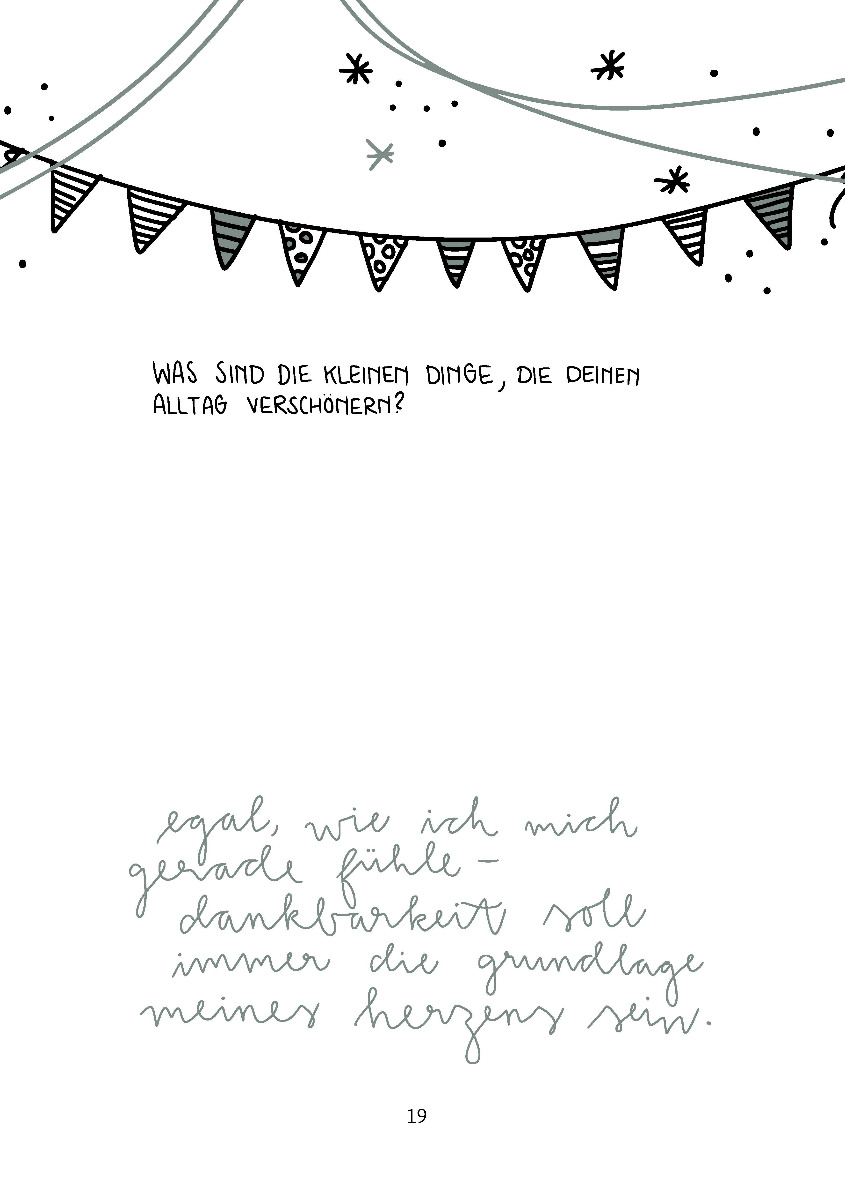 WAS SIND DIE KLEINEN DINGE, DIE DEINEN
ALLTAG VERSCHÖNERN?
egal, wie ich mich
gerade fühle –
dankbarkeit soll
immer die grundlage
meines herzens sein.
19